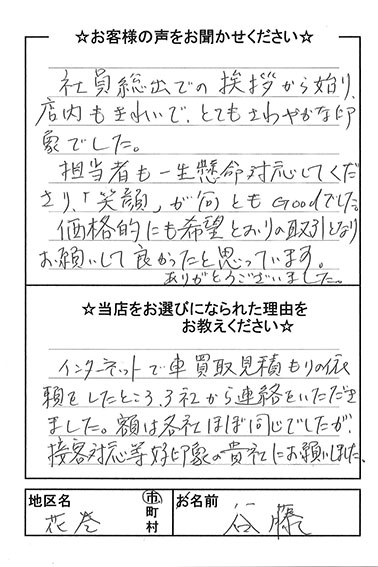 ☆お客様の声をお聞かせください☆
社員総出での挨拶から始り、
店内もきれいで、とてもさわやかな印
象でした。
担当者も一生懸命対応してくだ
さり、「笑顔」が何ともGoodでした。
価格的にも希望どおりの取引となり
お願いして良かったと思っています。
ありがとうございました。
☆当店をお選びになられた理由を
お教えください☆
インターネットで車買取見積もりの依
頼をしたところ、3社から連絡をいただき
ました。額は各社ほぼ同じでしたが、
接客対応等好印象の貴社にお願いしました。
地区名 市町村 お名前
花巻 谷藤